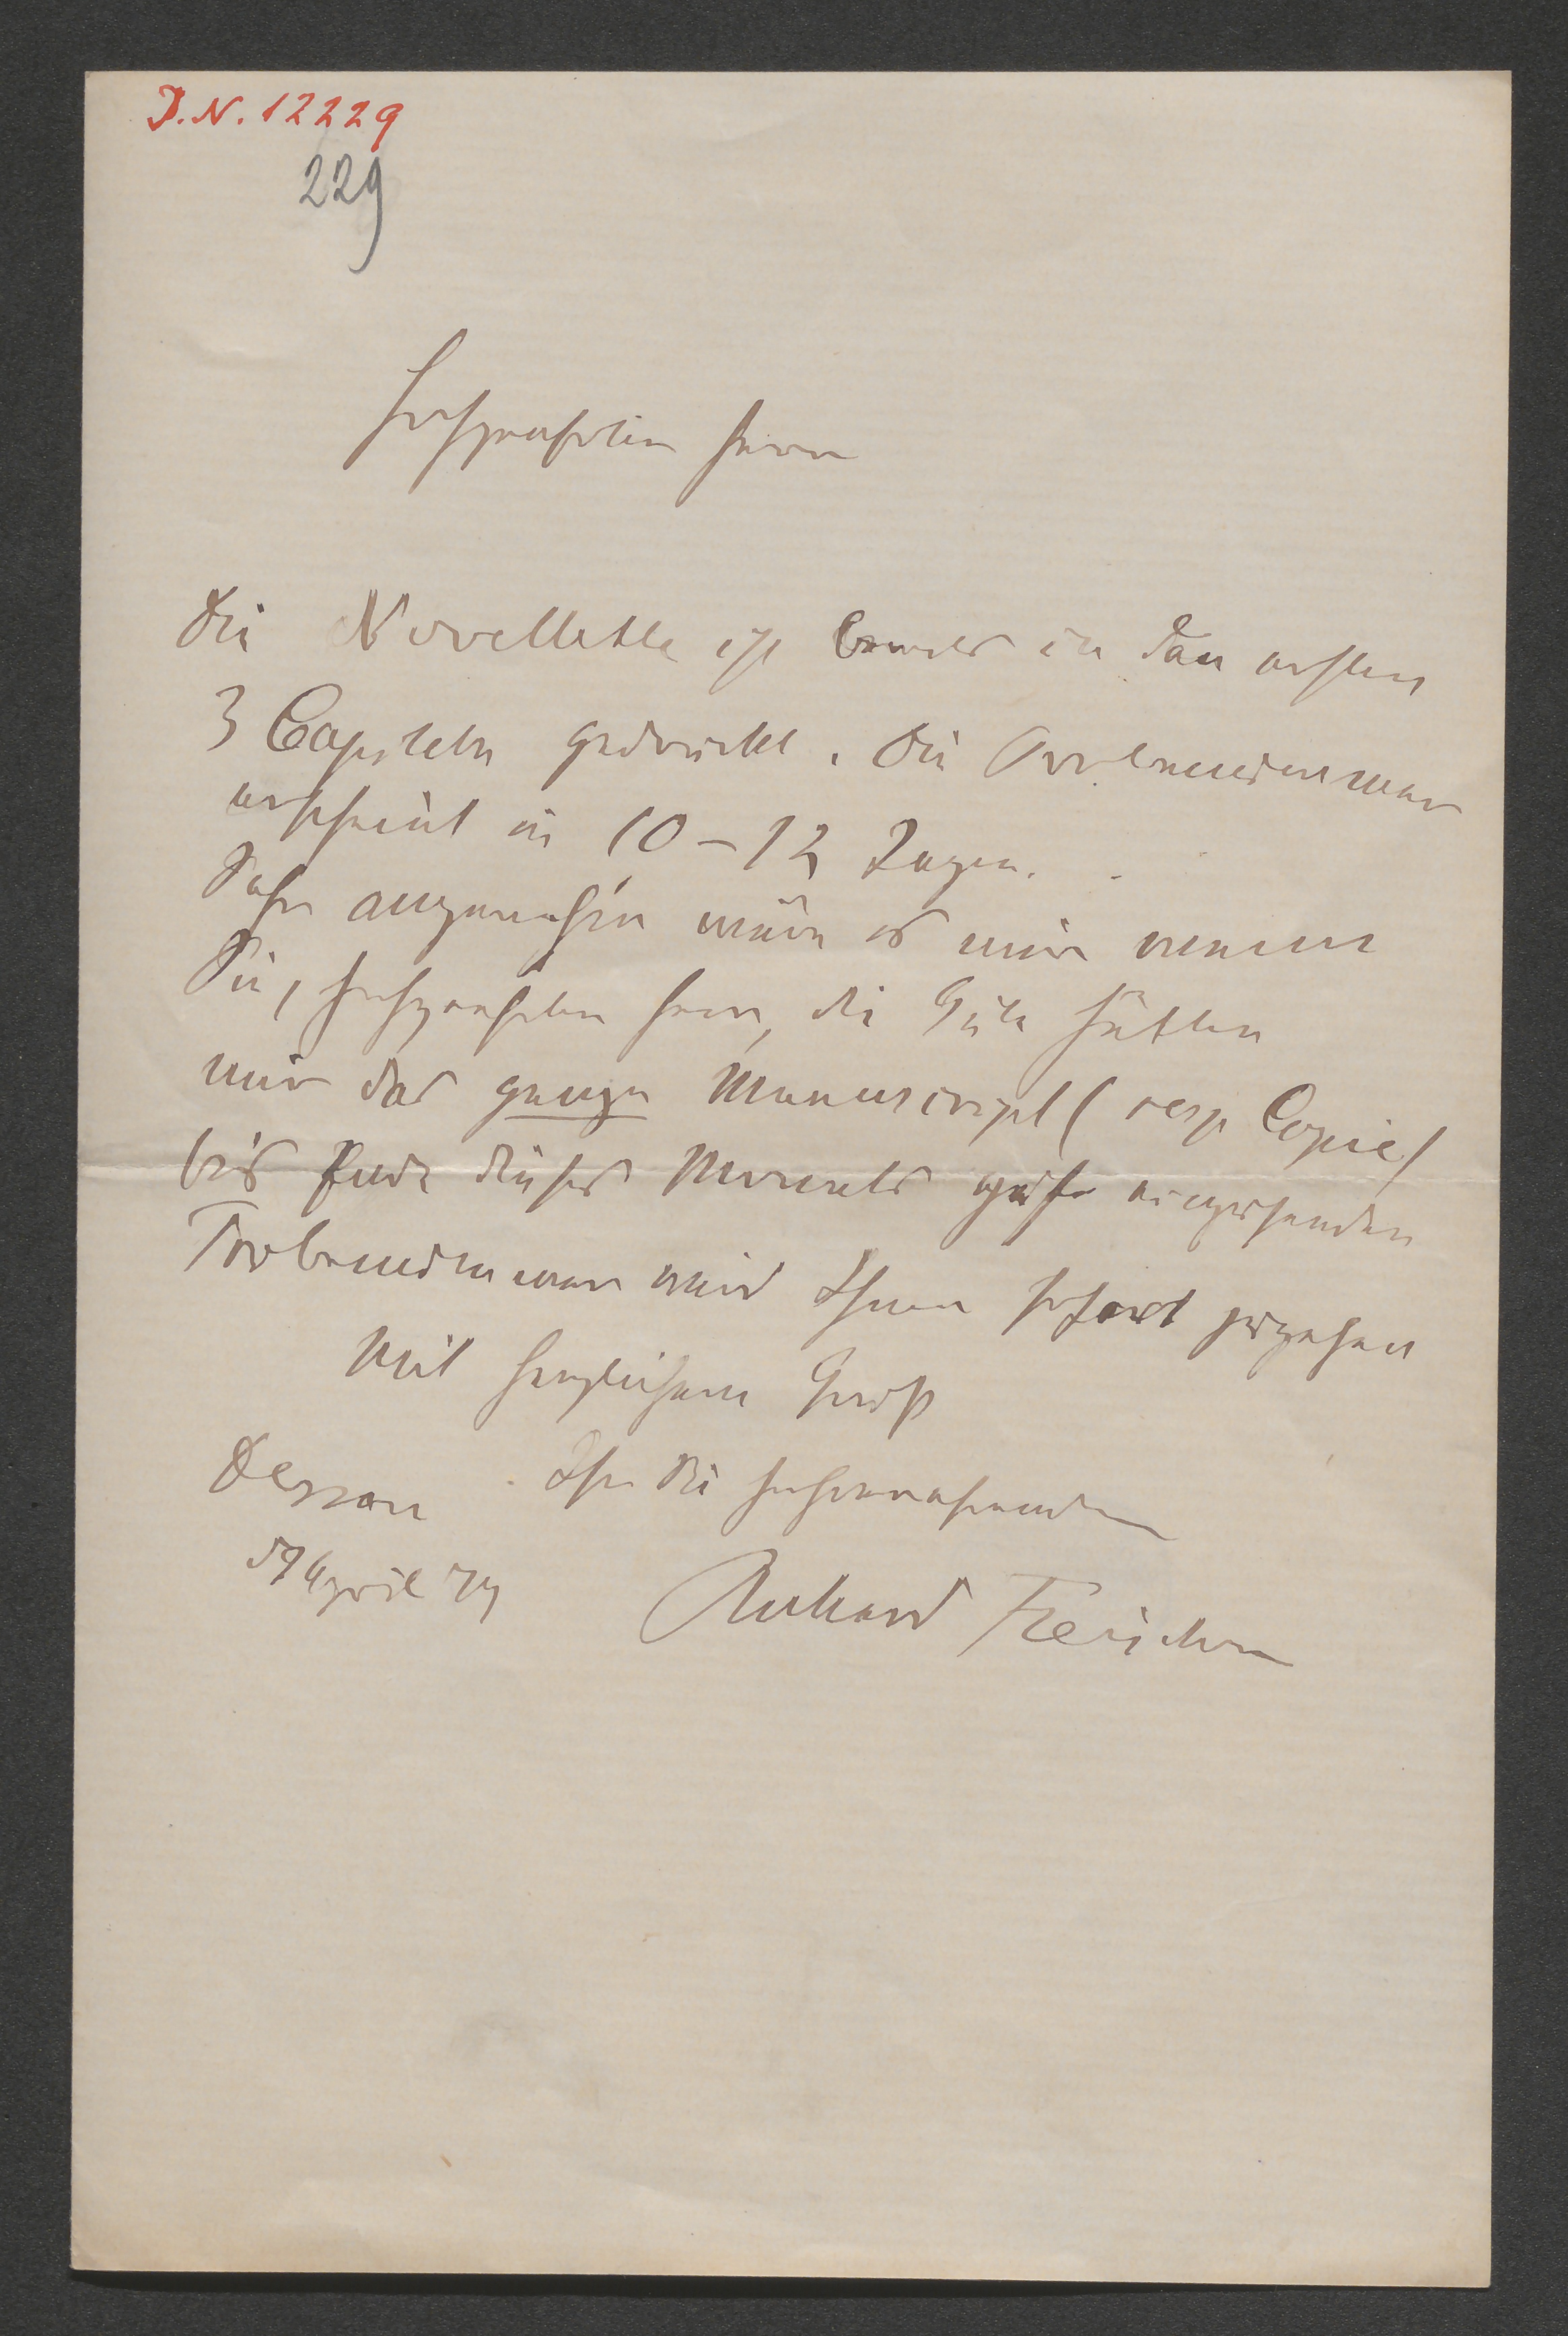 J.N. 12229
229
Hochgeehrter Herr
Die Novellette ist bereits in den ersten
3 Capiteln gedruckt. Die Probenummer
erscheint in 10–12 Tagen.
Sehr angenehm wäre es mir wenn
Sie, hochgeehrter Herr, die Güte hätten
mir das ganze Manuscript (resp. Copie)
bis Ende dieses Monats einzusenden
Probenummer wird Ihnen sofort zugehen
Mit herzlichem Gruß
Dessau Ihr Sie hochverehrender
d 9 April 79
Richard